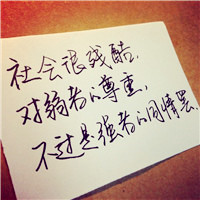 社会很残酷,
对弱者的尊重,
不过是强者的同情罢.